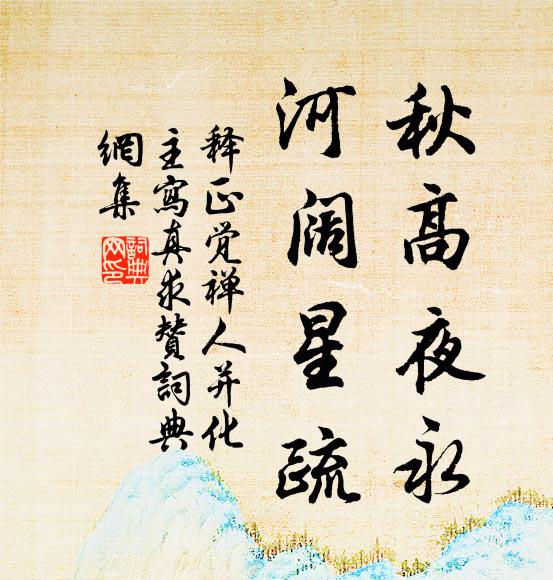 秋高夜永
河阔星疏
释正觉禅人并化
主寫真求赞詞典
網集
詞典網印